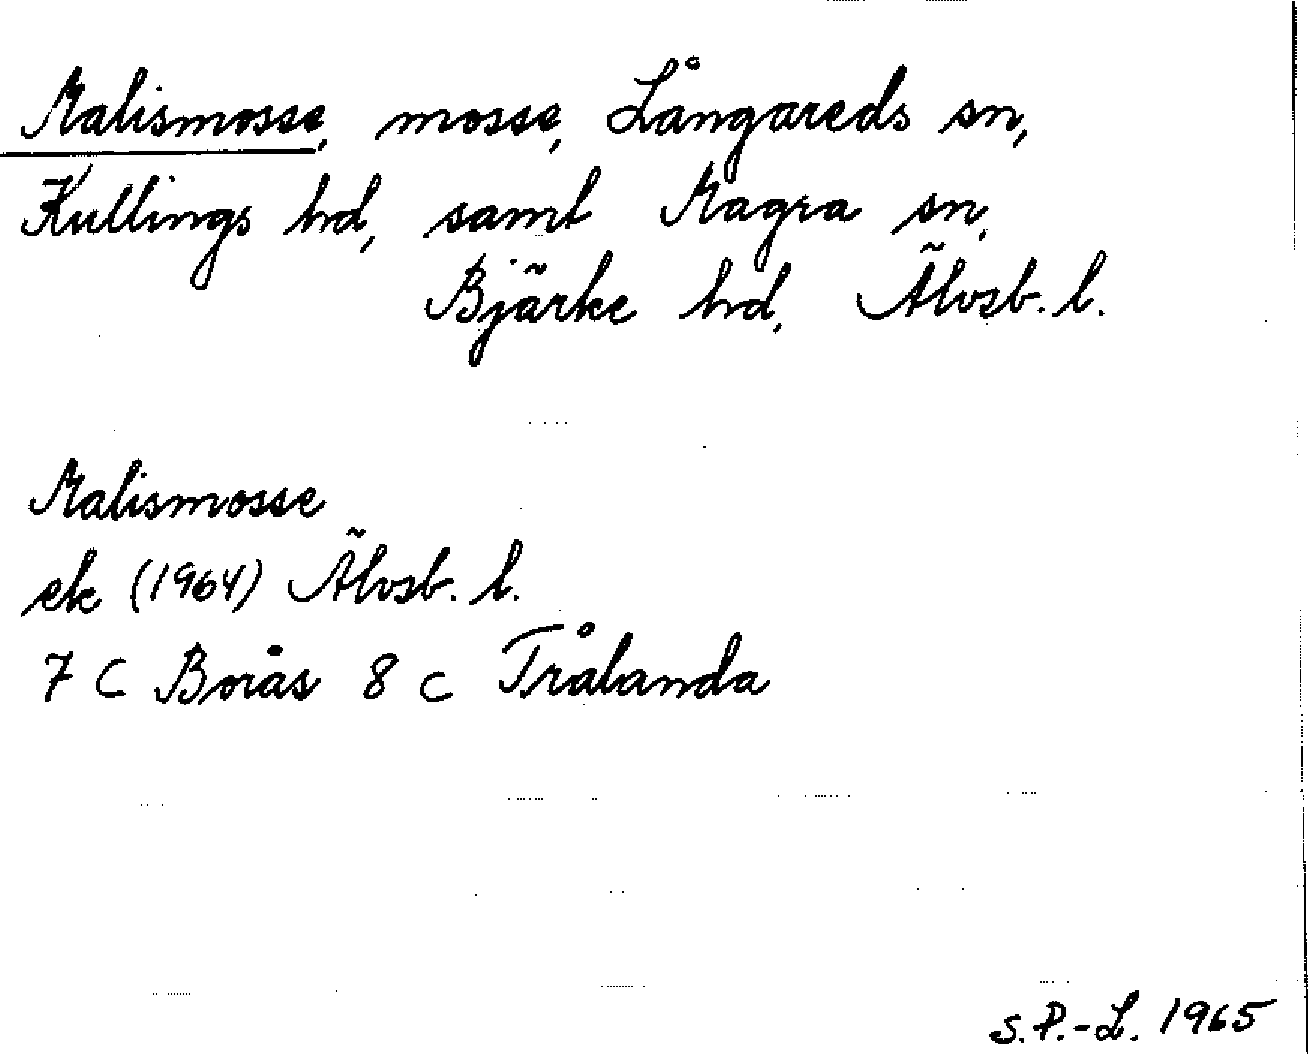 Malismosse, mosse, Långareds sn,
Kullings hd, samt Magra sn,
Bjärke hd, Älvsb. l.
Malismosse
ek (1964) Älvsb. l.
7 C Borås 8 c Trålanda
S.P.-L. 1965